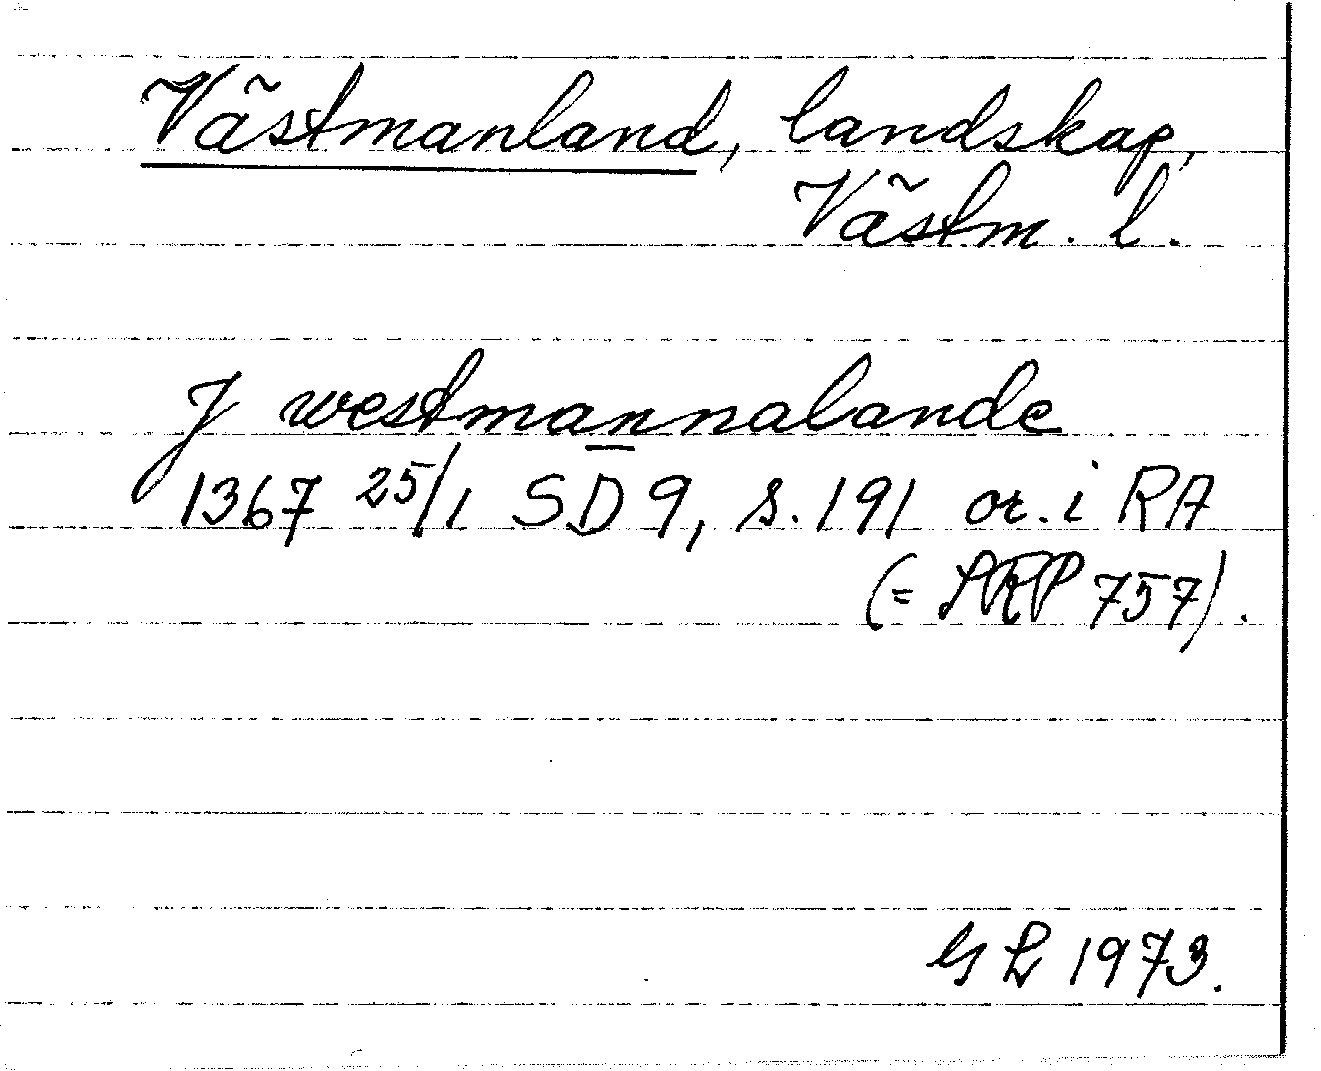 Västmanland, landskap,
Västm. l.
J westmannalande
1367 25/1 SD 9, s. 191 or. i RA
(= SRP 757).
GL 1973.